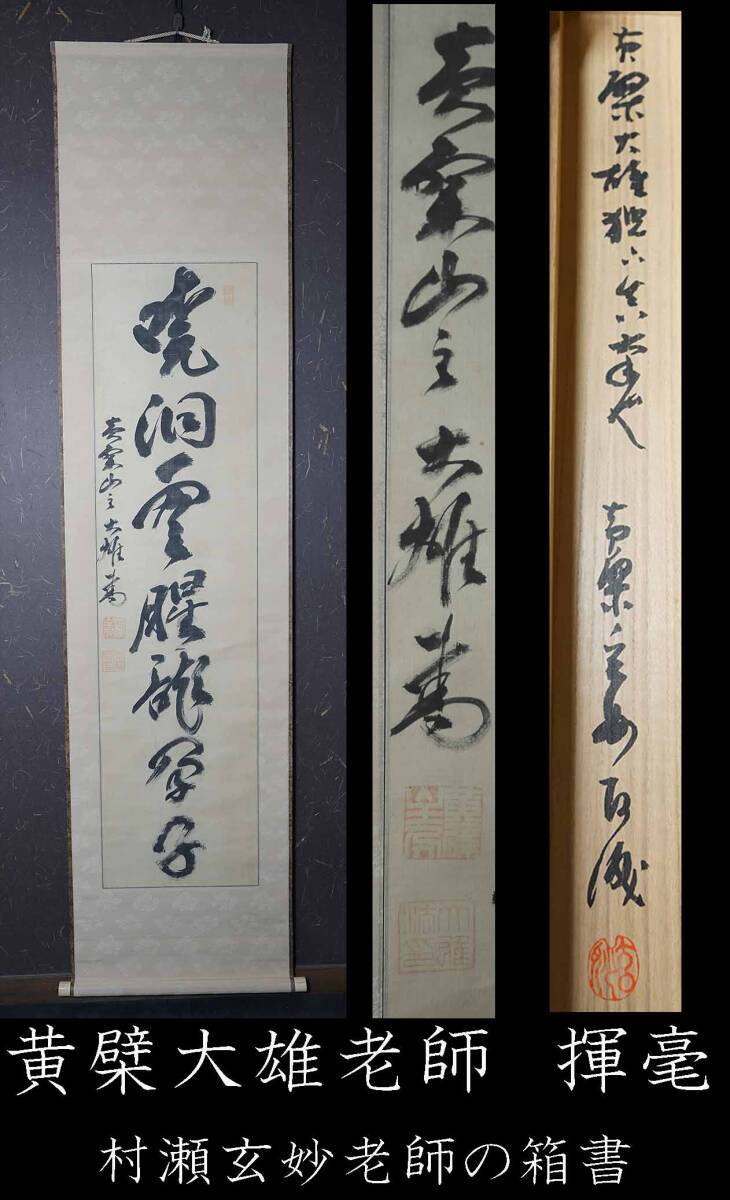 曉洞雲腥龍孕子
黄檗山主大雄書
黄檗山主大雄書
黄檗大雄猊下真筆也
黄檗玄妙 識
黄檗大雄老師 揮毫
村瀬玄妙老師の箱書